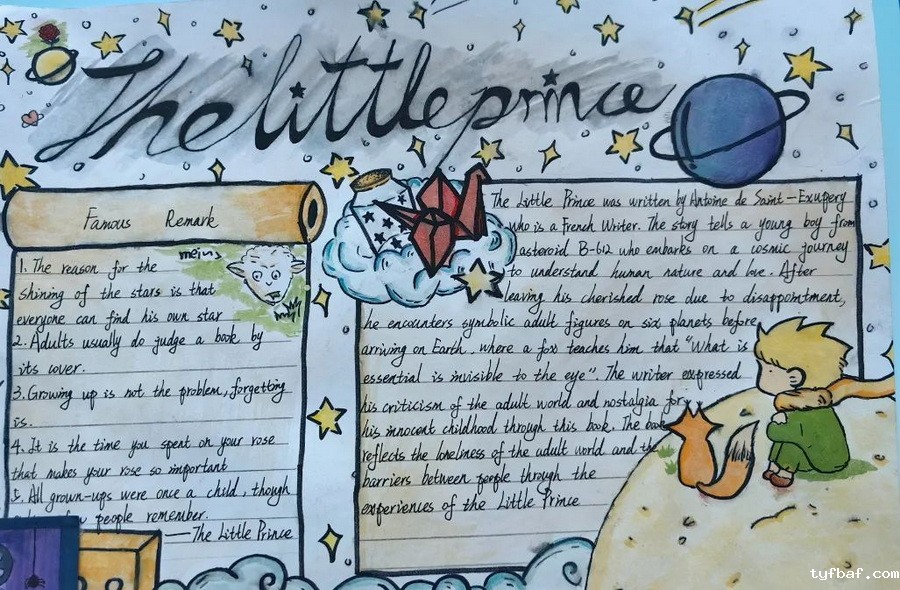 The little prince
Famous Remark
mein~
1. The reason for the
shining of the stars is that
everyone can find his own star
2. Adults usually do judge a book by
its cover.
3. Growing up is not the problem, forgetting
is.
4. It is the time you spent on your rose
that makes your rose so important
5. All grown-ups were once a child, though
people remember.
—The Little Prince
The Little Prince was written by Antoine de Saint-Exupery
who is a French Writer. The story tells a young boy from
asteroid B-612 who embarks on a cosmic journey
to understand human nature and love. After
leaving his cherished rose due to disappointment,
he encounters symbolic adult figures on six planets before
arriving on Earth, where a fox teaches him that "What is
essential is invisible to the eye". The writer expressed
his criticism of the adult world and nostalgia for
his innocent childhood through this book. The book
reflects the loneliness of the adult world and the
barriers between people through the
experiences of the Little Prince
tyfbaf.com